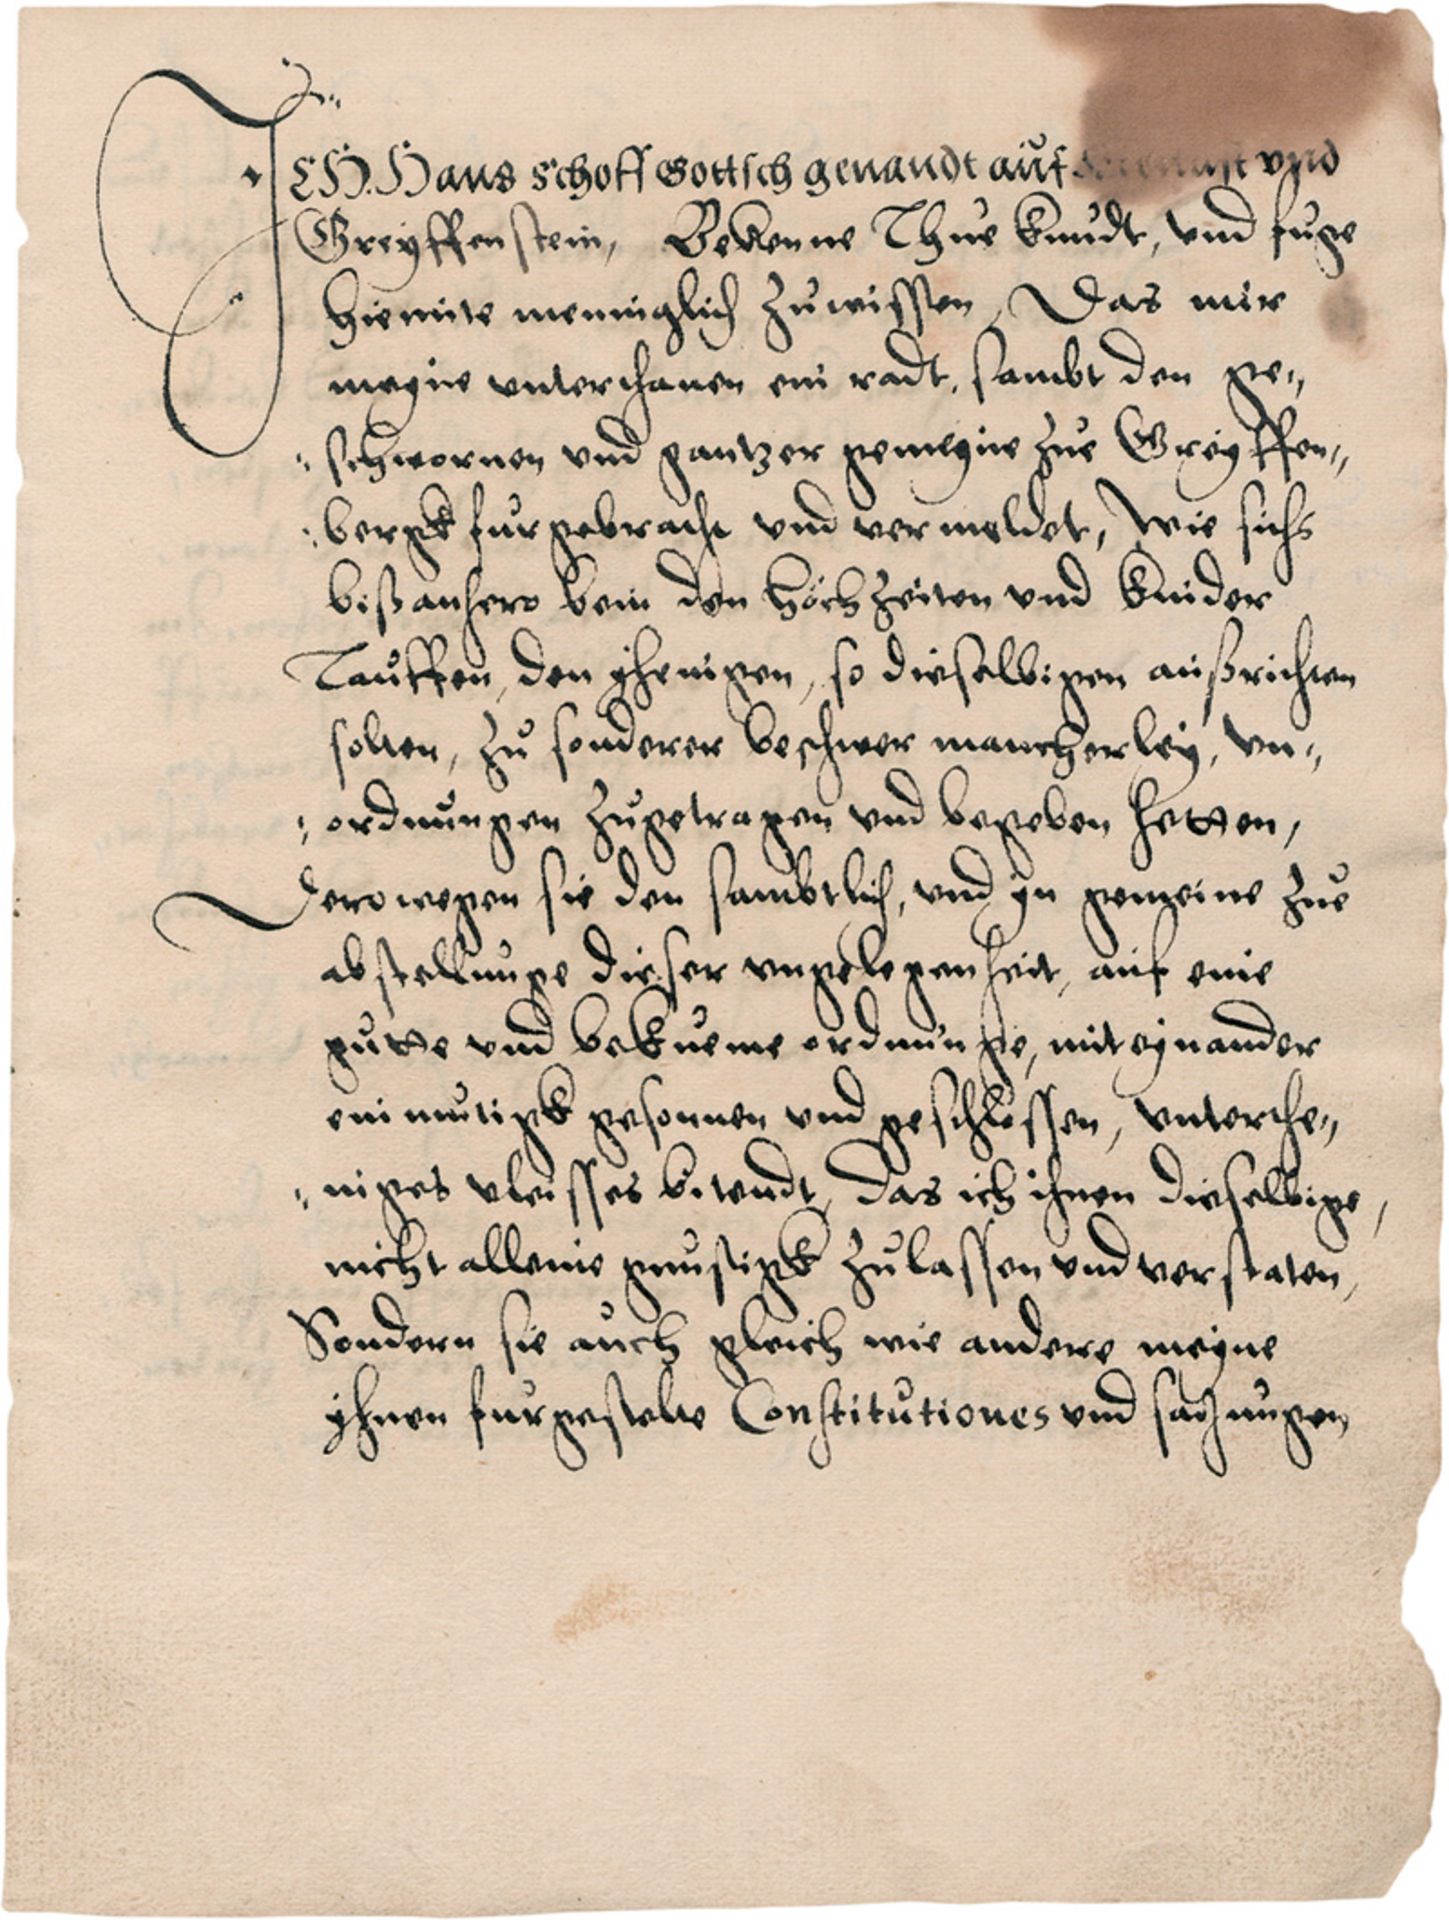 ICH Hans Schoff Gottsch genandt auf und
Greyffenstein, Bekenne Thue kundt, vnd fuge
hiemite menniglich zuwissen, Das mir
meyne vnterthanen ein radt, sambt den ge-,
schwornen vnd gantzer gemeyne zue Greyffen-,
bergk furgebracht vnd vermeldet, Wie sichs
bißanhero bein den Hochzeiten vnd kinder
Tauffen, den jhenigen, so dieselbigen außrichten
solten, zu sonderer beschwer mancherley, vn-,
ordnungen zugetragen vnd begeben hetten,
Derowegen sie den sambtlich, vnd yn gemeine zue
abstellunge dieser vngelegenheit, auf eine
gutte vnd bekueme ordnunge, mit eynander
einmutigk gesonnen vnd geschlossen, vnterthe-,
niges vleisses bitendt, das ich ihnen dieselbige,
nicht alleine gunstigk zulassen vnd verstaten,
Sondern sie auch gleich wie andere meyne
yhnen furgestelte Constitutiones vnd satzungen